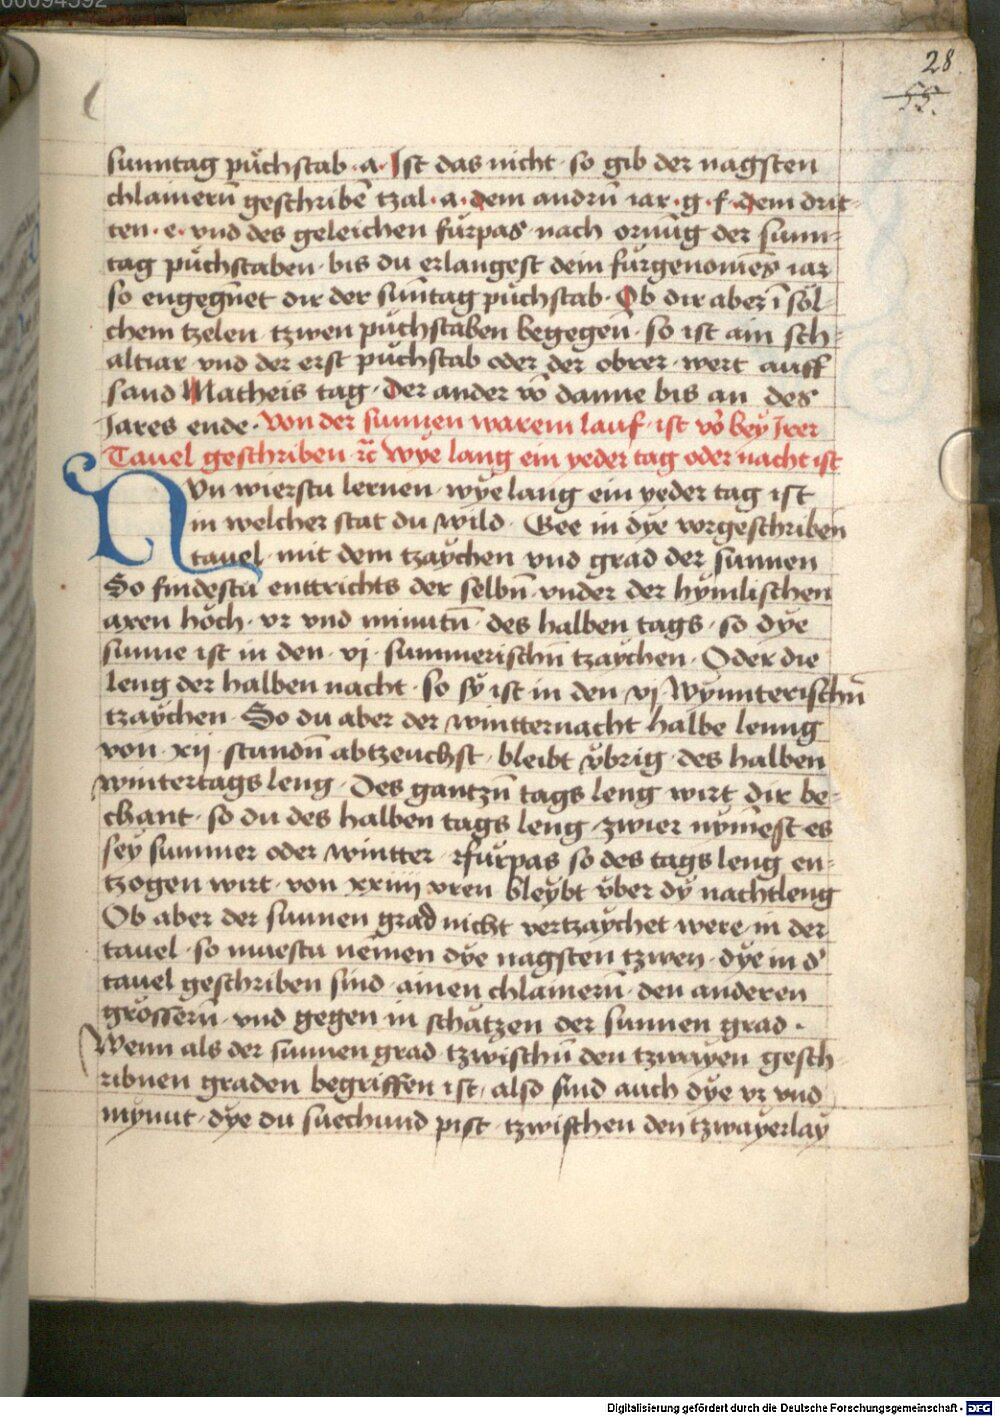 00094592
28
55.
sunntag pu̇chstab · a · Ist das nicht · so gib der nagsten
chlainern̄ geschribē tzal · a · dem andrn̄ iar · g · f · dem drit-
ten · e · vnd des geleichen fu̇rpas · nach ornūg der sunn-
tag pu̇chstaben · bis du erlangest dein fu̇rgenomēs iar
so engegn̄et dir der sun̄tag pu̇chstab · Ob dir aber ī sȯl-
chem tzelen · tzwen pu̇chstaben begegen̄ · so ist ain sch-
altiar · vnd der erst pu̇chstab oder der obrer · wert auff
sand Matheis tag · Der ander vō danne bis an des
Jares ende · Von der sunnen warem lauf · ist vō bey Irer
Tauel geschriben · ꝛc̄ Wye lang ein yeder tag oder nacht ist
NVn wierstu lernen · wye lang ein yeder tag ist
in welcher stat du wild · Gee in dye vorgeschriben
tauel · mit dem tzaychen vnd grad der sunnen
So findestu enttrichts der selbn̄ · vnder der hymlischen
axen hȯch · vr vnd minutn̄ · des halben tags · so dye
sunne ist in den · vj · summerischn̄ tzaychen · Oder die
leng der halben nacht · so sy ist in den vj Wynnterischn̄
tzaychen · So du aber der wintternacht halbe lenng
von · xij · stundn̄ abtzeuchst · bleibt ẏbrig · des halben
wintertags leng · Des gantzn̄ tags leng wirt dir be-
chant · so du des halben tags leng · zwier nym̄est es
sey summer oder wintter · fu̇rpas so des tags leng en-
tzogen wirt · von xxiiij vren bleybt ẏber dy nachtleng
Ob aber der sunnen grad nicht vertzaychet were in der
tauel · so muestu nemen dye nagsten tzwen · dye in d'
tauel geschriben sind · ainen chlainern̄ · den anderen
grȯssern̄ · vnd gegen in schatzen der sunnen grad ·
Wenn als der sunnen grad · tzwischn̄ den tzwayen gesch-
ribnen graden begriffen ist · also sind auch dye vr vnd
mynut · dye du suechund pist · tzwischen den tzwayerlay
Digitalisierung gefördert durch die Deutsche Forschungsgemeinschaft - DFG